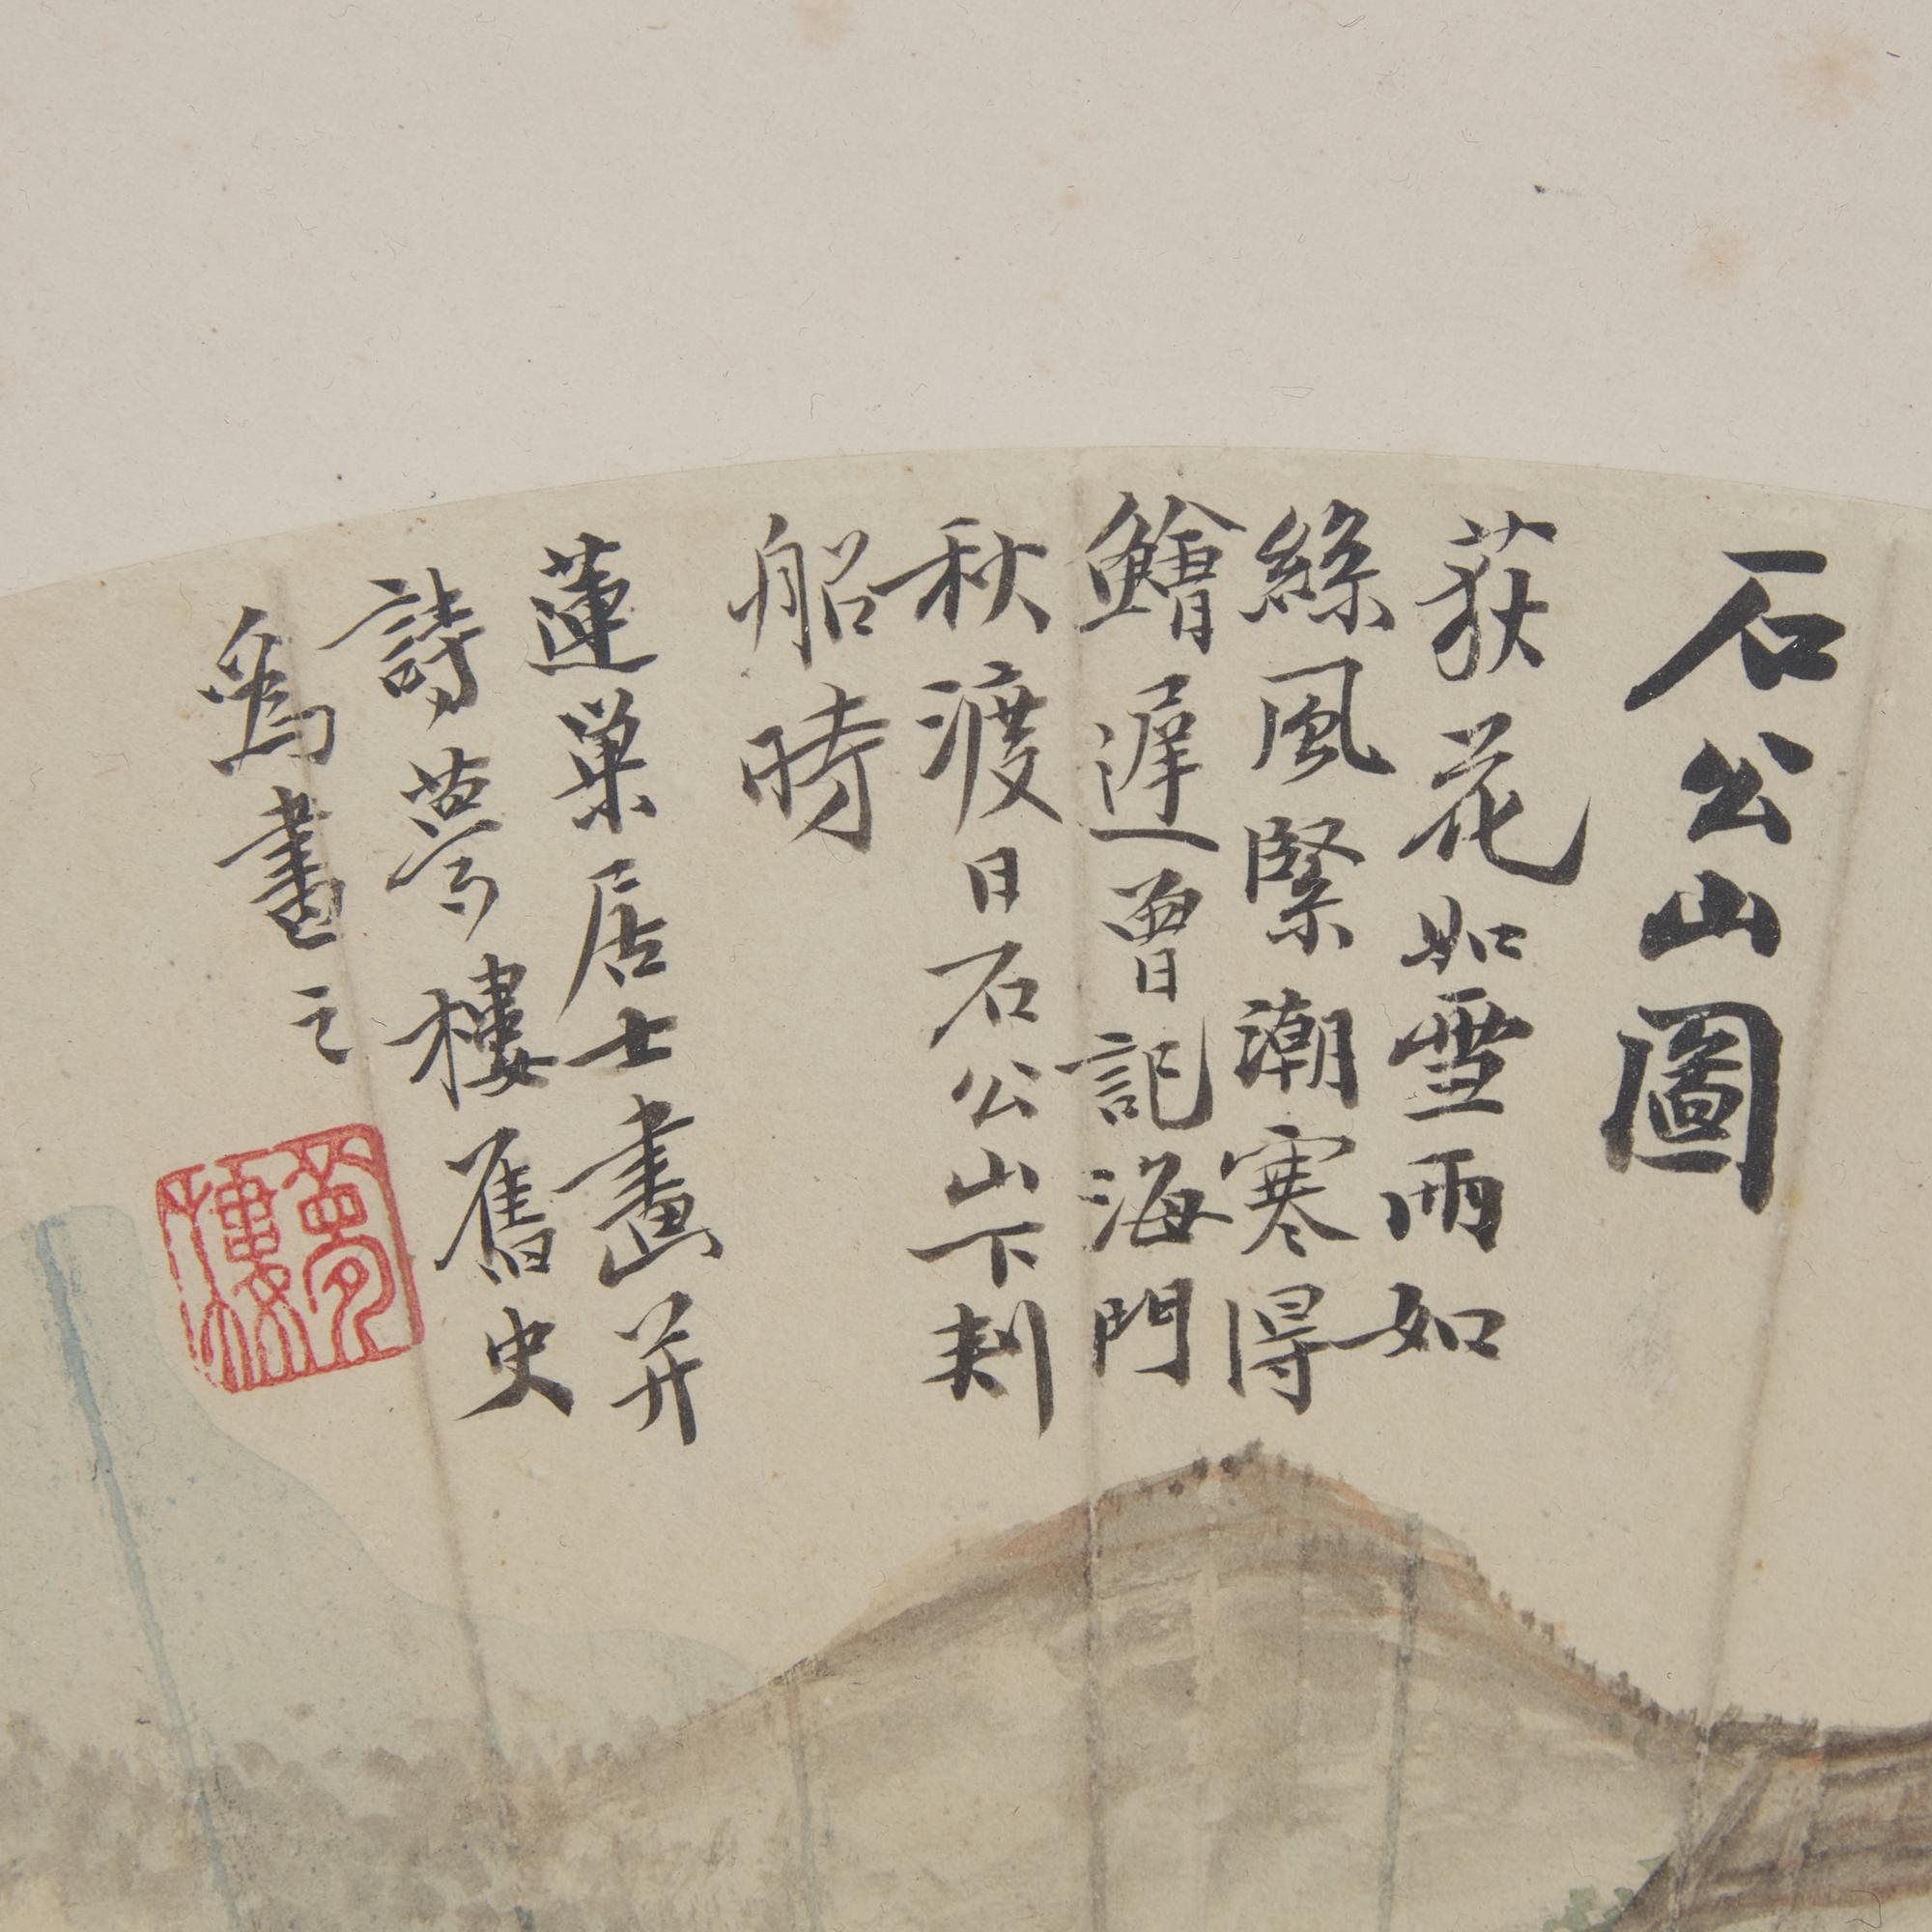 石公山圖
荻花如雪雨如
絲風緊潮寒得
鱠遲曾記海門
秋渡日石公山下刺
船時
蓮巢居士畫并
詩夢樓舊史
爲書之
夢樓